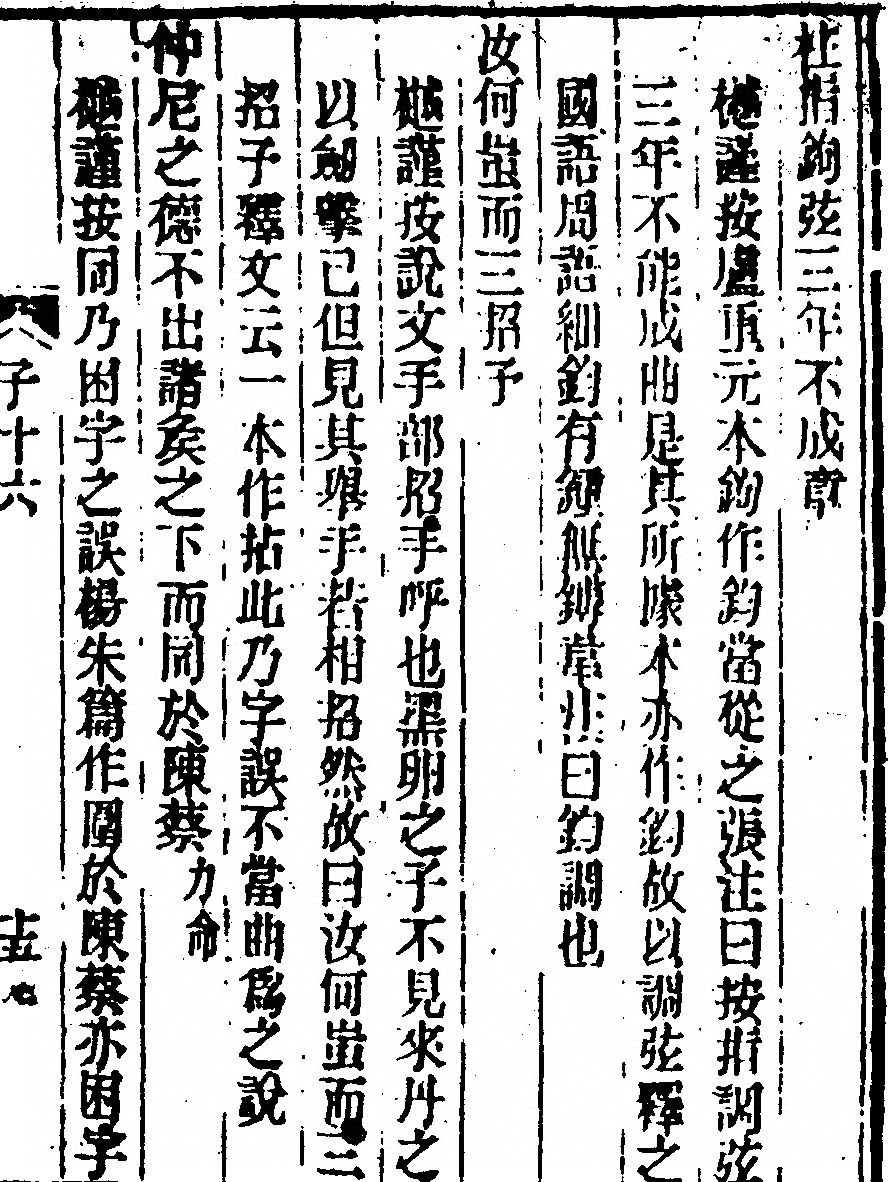 柱指鉤弦三年不成章
樾謹按盧重元本鉤作鈞當從之張注曰按指調弦
三年不能成曲是其所據本亦作鈞故以調弦釋之
國語周語細鈞有鍾無鎛韋注曰鈞調也
汝何蚩而三招予
樾謹按說文手部招手呼也黑卵之子不見來丹之
以劒擊已但見其舉手若相招然故曰汝何蚩而三
招予釋文云一本作拈此乃字誤不當曲爲之說
仲尼之德不出諸矦之下而同於陳蔡力命
樾謹按同乃困字之誤楊朱篇作圍於陳蔡亦困字
子十六
十五